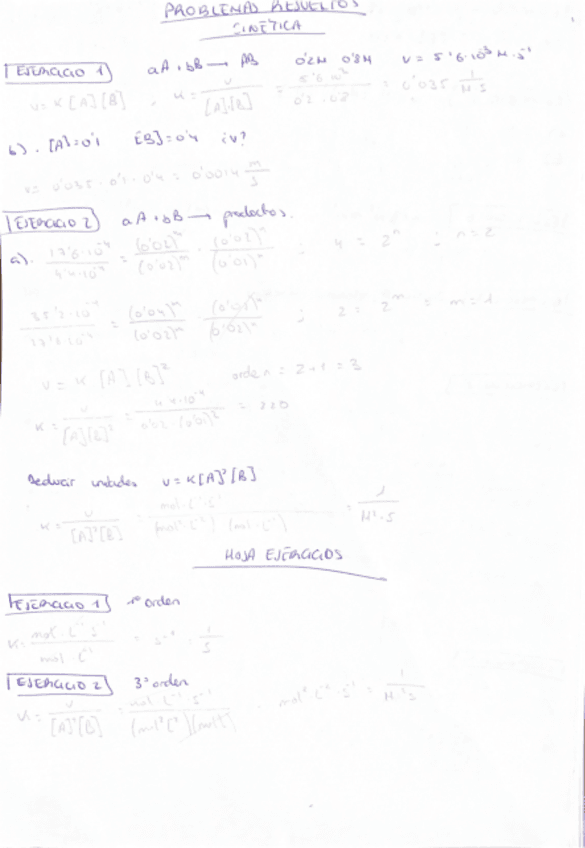 PROBLEMAS RESUELTOS
CINÉTICA
EJERCICIO 1) aA + bB → AB 0'2M 0'8M v = 5'6·10⁻³ M·s⁻¹
v = K[A][B] , K = v/[A][B] = 0'2·0'8 = 0'035 1/M·S
b). [A]=0'1 [B]=0'4 ¿v?
v = 0'035·0'1·0'4 = 0'0014 M/S
EJERCICIO 2) aA + bB → productos.
a). 17'6·10⁻⁴/4'4·10⁻⁴ = (0'02)ᵐ/(0'02)ᵐ · (0'02)ⁿ/(0'01)ⁿ ; 4 = 2ⁿ : n=2
35'2·10⁻⁴/17'6·10⁻⁴ = (0'04)ᵐ/(0'02)ᵐ ; 2 = 2ᵐ = m=1
v = K [A][B]² orden = 2+1 = 3
K = v/[A][B]² = 4'4·10⁻⁴/0'02·(0'01)² = 220
Deducir unidades v = K[A]²[B]
K = v/[A]²[B] = mol·L⁻¹·s⁻¹/(mol²·L⁻²)(mol·L⁻¹) = 1/M²·S
HOJA EJERCICIOS
EJERCICIO 1) 1º orden
K = mol·L⁻¹·s⁻¹/mol·L⁻¹ = s⁻¹ = 1/S
EJERCICIO 2) 3º orden
K = v/[A]²[B] = mol·L⁻¹·s⁻¹ = 1/M²S